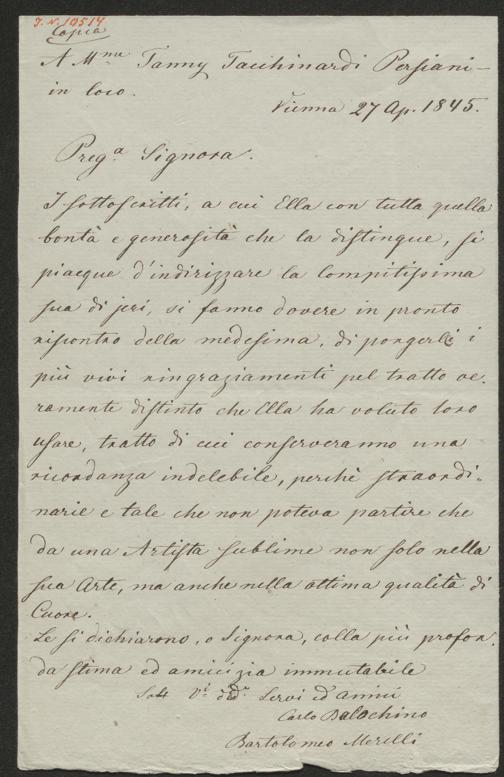 J. N. 19514
Copia
A Mme Fanny Tacchinardi Persiani —
in loco.
Vienna 27 Ap. 1845.
Prega Signora.
I sottoscritti, a cui Ella con tutta quella
bontà e generosità che la distingue, si
piacque d'indirizzare la compitissima
sua di jeri, si fanno dovere in pronto
riscontro della medesima, di porgerle i
più vivi ringraziamenti pel tratto ve-
ramente distinto che Ella ha voluto loro
usare, tratto di cui conserveranno una
ricordanza indelebile, perchè straordi-
narie e tale che non poteva partire che
da una Artista sublime non solo nella
sua Arte, ma anche nella ottima qualità di
Cuore.
Le si dichiarono, o Signora, colla più profon-
da stima ed amicizia immutabile
Servi ed amici
Carlo Balochino
Bartolomeo Merelli